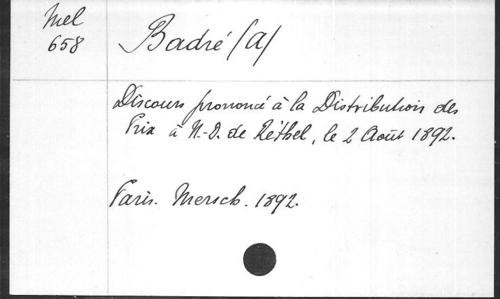 Mel
658
Badré (A)
Discours prononcé à la Distribution des
Prix à N.-D. de Réthel, le 2 Août 1892.
Paris. Mersch. 1892.